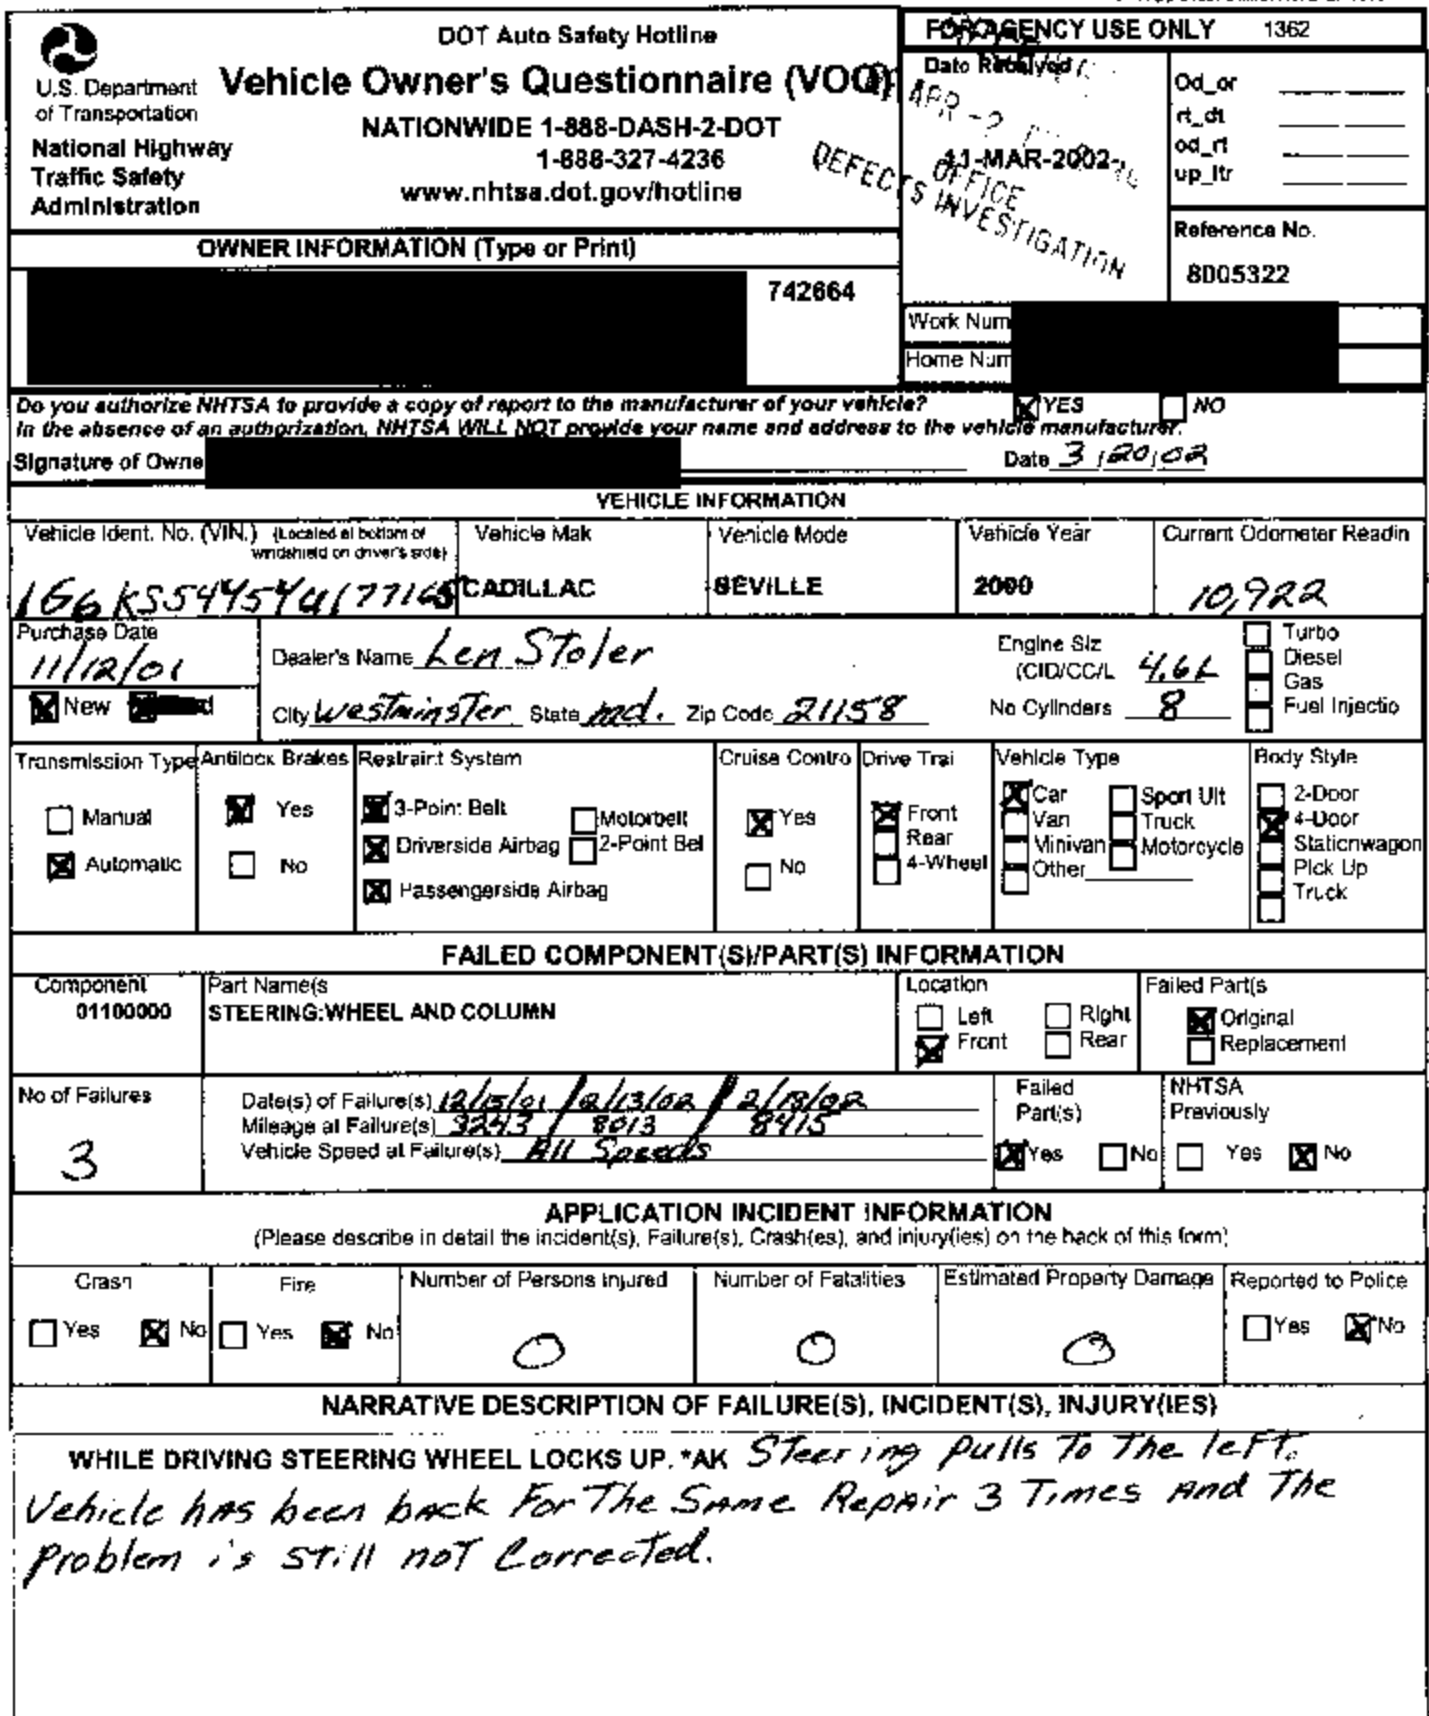 DOT Auto Safety Hotline
Vehicle Owner's Questionnaire (VOQ)
NATIONWIDE 1-888-DASH-2-DOT
1-888-327-4236
www.nhtsa.dot.gov/hotline
U.S. Department
of Transportation
National Highway
Traffic Safety
Administration
FOR AGENCY USE ONLY 1362
Date Received
APR -2
11-MAR-2002
OFFICE
DEFECTS INVESTIGATION
Od_or
rt_dt
od_rt
up_ltr
Reference No.
8005322
OWNER INFORMATION (Type or Print)
742664
Work Num
Home Num
Do you authorize NHTSA to provide a copy of report to the manufacturer of your vehicle? YES NO
In the absence of an authorization, NHTSA WILL NOT provide your name and address to the vehicle manufacturer.
Signature of Owne Date 3/20/02
VEHICLE INFORMATION
Vehicle Ident. No. (VIN.) (Located at bottom of windshield on driver's side)
1G6KS54Y5YU177165
Vehicle Mak
CADILLAC
Vehicle Mode
SEVILLE
Vehicle Year
2000
Current Odometer Readin
10,922
Purchase Date
11/12/01
New
Dealer's Name Len Stoler
City Westminster State md. Zip Code 21158
Engine Siz
(CID/CC/L 4.6L
No Cylinders 8
Turbo
Diesel
Gas
Fuel Injectio
Transmission Type
Manual
Automatic
Antilock Brakes
Yes
No
Restraint System
3-Point Belt
Driverside Airbag
Passengerside Airbag
Motorbelt
2-Point Bel
Cruise Contro
Yes
No
Drive Trai
Front
Rear
4-Wheel
Vehicle Type
Car
Van
Minivan
Other
Sport Ult
Truck
Motorcycle
Body Style
2-Door
4-Door
Stationwagon
Pick Up
Truck
FAILED COMPONENT(S)/PART(S) INFORMATION
Component
01100000
Part Name(s
STEERING:WHEEL AND COLUMN
Location
Left
Front
Right
Rear
Failed Part(s
Original
Replacement
No of Failures
3
Date(s) of Failure(s) 12/15/01 / 2/13/02 / 2/18/02
Mileage at Failure(s) 3243 / 8013 / 8415
Vehicle Speed at Failure(s) All Speeds
Failed
Part(s)
Yes No
NHTSA
Previously
Yes No
APPLICATION INCIDENT INFORMATION
(Please describe in detail the incident(s), Failure(s), Crash(es), and injury(ies) on the back of this form)
Crash
Yes No
Fire
Yes No
Number of Persons Injured
0
Number of Fatalities
0
Estimated Property Damage
0
Reported to Police
Yes No
NARRATIVE DESCRIPTION OF FAILURE(S), INCIDENT(S), INJURY(IES)
WHILE DRIVING STEERING WHEEL LOCKS UP. *AK Steering pulls To The left.
Vehicle has been back For The Same Repair 3 Times And The
problem is still not Corrected.